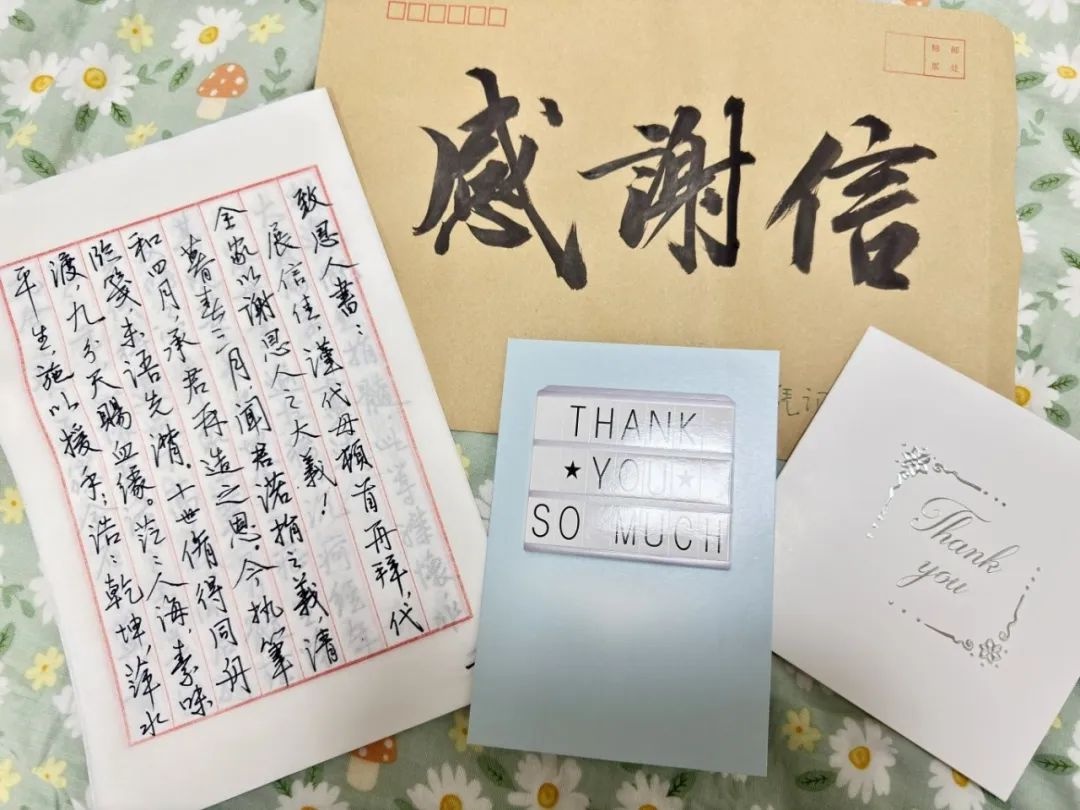 感谢信
贴邮
票处
凭记
致恩人书：
展信佳，谨代母顿首再拜，代
全家以谢恩人之大义！
暮春三月闻君诺捐之义，清
和四月，承君再造之恩。今执笔
临笺，未语先潸。十世修得同舟
渡，九分天赐血缘。茫茫人海，素昧
平生，施以援手；浩浩乾坤，萍水
THANK
★YOU★
SO MUCH
Thank
you